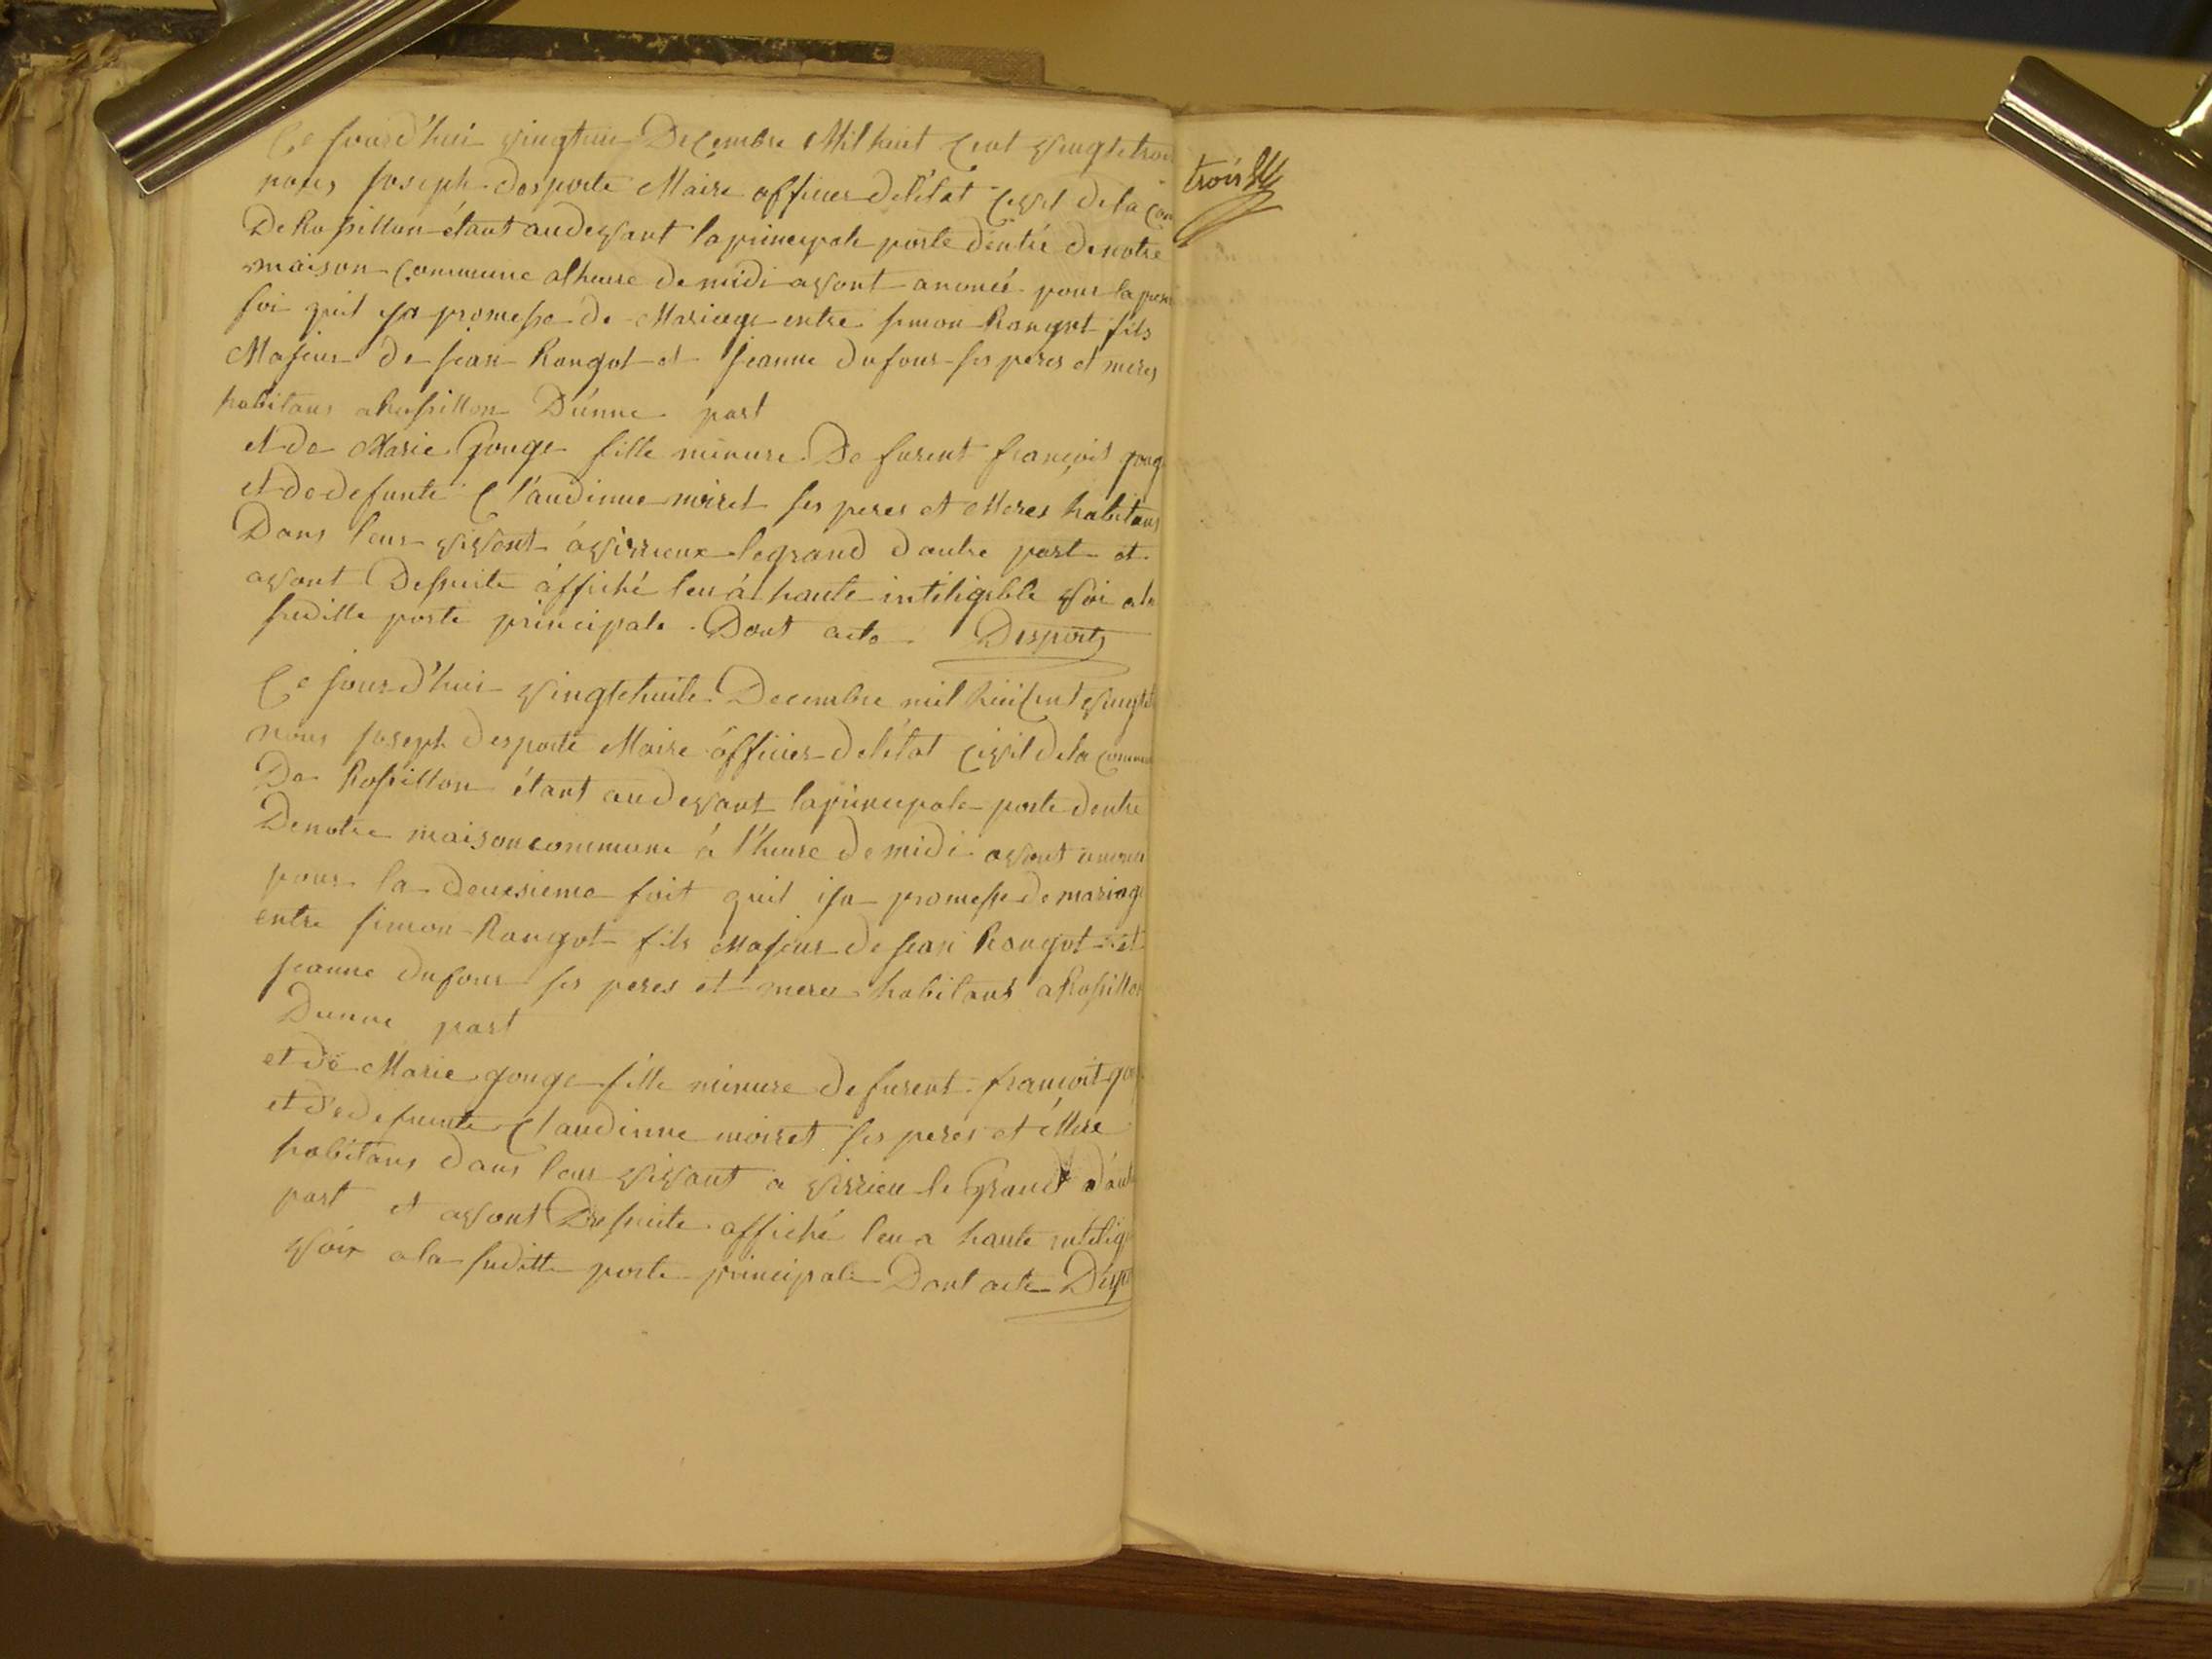 Ce jourd'hui vingtun Decembre Mil huit Cent vingt trois
nous joseph desporte Maire officier deletat Civil dela Com
De Rossillon étant au devant la principale porte d'entré de notre
maison Commune alheure de midi avont anoncé pour la prem
foi quil ya promesse de Mariage entre simon Rangot fils
Majeur de jean Rangot et jeanne dufour ses peres et meres
habitans a Rossillon D'unne part
et de Marie Gouge fille minure De furent françois goug
et de defunte Claudinne moiret ses peres et Meres habitans
Dans leur vivant à virrieux legrand d autre part et
avont Desuite affiché leu à haute inteligible voi a la
suditte porte principale. Dont acte Desporte
Ce jourd'hui vingtehuite Decembre mil huicent vingt
nous joseph desporte Maire officier deletat Civil dela commu
De Rossillon étant au devant la principale porte dentre
De notre maison commune à l'heure de midi avont anonc
pour la deuxsieme foit quil iya promesse de mariage
entre simon Rangot fils Majeur de jean Rangot et
jeanne dufour ses peres et meres habitans a Rossillon
Dunne part
et de Marie gouge fille minure de furent françoit gou
et de defunte Claudinne moiret ses peres et Mere
habitans dans leur vivant a virrieu le Grand d'aut
part et avont Desuite affiché leu a haute intelig
voix a la suditte porte principale Dont acte Desp
trois